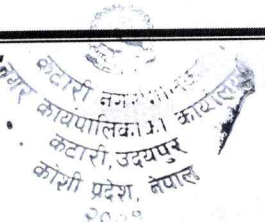 कटारी
नगर कार्यपालिकाको कार्यालय
कटारी, उदयपुर
कोशी प्रदेश, नेपाल